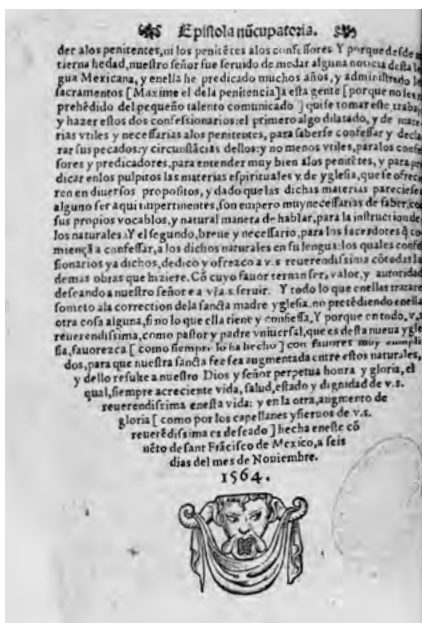 Epistola nũcupatoria.
der alos penitentes, ni los penitẽtes alos confessores Y porque desde mi
tierna hedad, nuestro señor fue seruido de me dar alguna noticia desta lẽ
gua Mexicana, y enella he predicado muchos años, y administrado los
sacramentos [ Maxime el dela penitencia ] a esta gente [ porque no les
prehẽdido del pequeño talento comunicado ] quise tomar este trabajo
y hazer estos dos confessionarios: el primero algo dilatado, y de mate
rias vtiles y necessarias alos penitentes, para saberse confessar y decla
rar sus pecados: y circunstãcias dellos: y no menos vtiles, paralos confes
sores y predicadores, para entender muy bien alos penitẽtes, y para pre
dicar enlos pulpitos las materias espirituales y de yglesia, que se ofrecie
ren en diuersos propositos, y dado que las dichas materias pareciesen
alguno ser aqui impertinentes, son empero muy necessarias de saber, con
sus propios vocablos, y natural manera de hablar, para la instruction de
los naturales: Y el segundo, breue y necessario, para los sacerdotes q̃ co
miençã a confessar, a los dichos naturales en su lengua: los quales confes
sionarios ya dichos, dedico y ofrezco a v. s reuerendissima cõ todas las
demas obras que hiziere. Cõ cuyo fauor ternan ser, valor, y autoridad
deseando a nuestro señor e a vr̃a s seruir. Y todo lo que enellas tratare
someto ala correction dela sancta madre yglesia. no pretẽdiendo enella
otra cosa alguna, si no lo que ella tiene y confiessa, Y porque en todo, v. s
reuerendissima, como pastor y padre vniuersal, que es desta nueua ygle
sia, fauorezca [ como siempre lo ha hecho ] con fauores muy cumpli
dos, para que nuestra sancta fee sea augmentada entre estos naturales,
y dello resulte a nuestro Dios y señor perpetua honra y gloria, el
qual, siempre acreciente vida, salud, estado y dignidad de v. s.
reuerendissima enesta vida: y en la otra, augmento de
gloria [ como por los capellanes y sieruos de v. s.
reuerẽdissima es deseado ] hecha eneste cõ
uẽto de sant Frãcisco de Mexico, a seis
dias del mes de Nouiembre.
1564.